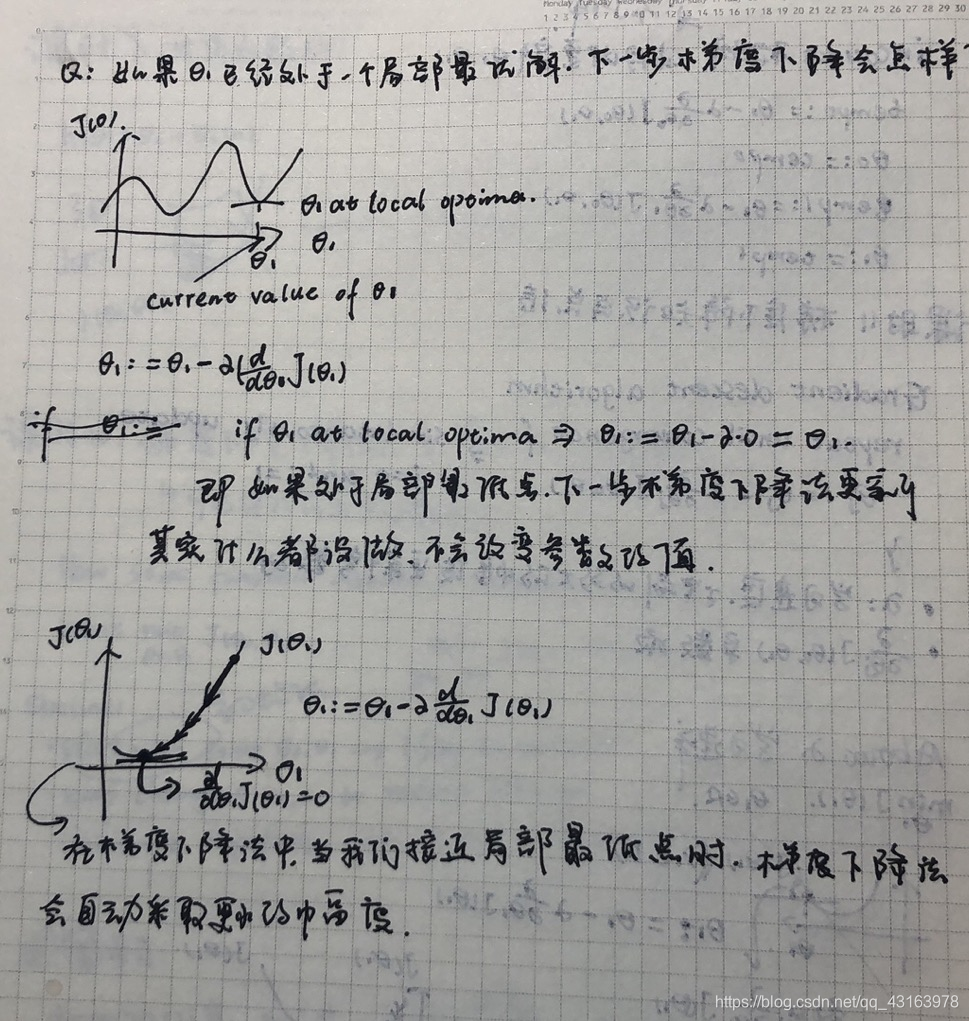 Monday Tuesday Wednesday Thursday
1 2 3 4 5 6 7 8 9 10 11 12 13 14 15 16 17 18 19 20 21 22 23 24 25 26 27 28 29 30
Q: 如果θ₁已经处于一个局部最优解. 下一步梯度下降会怎样
J(θ).
θ₁ at local optima.
θ₁
θ₁
current value of θ₁
θ₁ := θ₁ - α(d/dθ₁ J(θ₁)
if θ₁ :=
if θ₁ at local optima ⇒ θ₁ := θ₁ - α·0 = θ₁.
即如果处于局部最低点. 下一步梯度下降法更新
其实什么都没做. 不会改变参数的值.
J(θ₁)
J(θ₁)
θ₁ := θ₁ - α d/dθ₁ J(θ₁)
θ₁
d/dθ₁ J(θ₁) = 0
在梯度下降法中. 当我们接近局部最低点时. 梯度下降法
会自动采取更小的幅度.
https://blog.csdn.net/qq_43163978